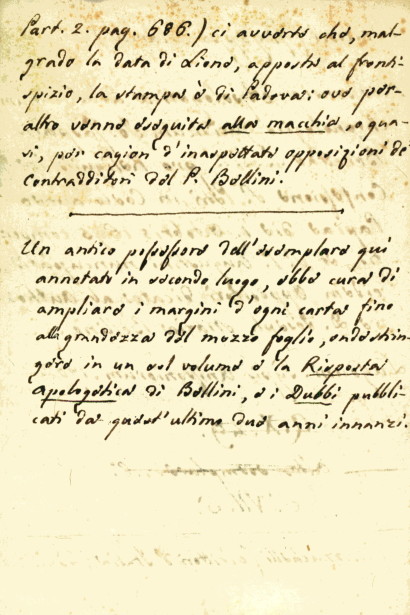 Part. 2. pag. 686.) ci avverte che, mal-
grado la data di Lione, apposta al fronti-
spizio, la stampa è di Padova: ove per-
altro venne eseguita alla macchia, o qua-
si, per cagion d'inaspettate opposizioni de'
Contradditori del P. Bellini.
Un antico possessore dell'esemplare qui
annotato in secondo luogo, ebbe cura di
ampliare i margini d'ogni carta fino
alla grandezza del mezzo foglio, onde strin-
gere in un sol volume e la Risposta
Apologetica di Bellini, e i Dubbi pubbli-
cati da quest'ultimo due anni innanzi.